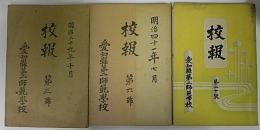 明治三十九年十月
校報
第三號
愛知縣第二師範學校
明治四十一年七月
校報
第六號
愛知縣第二師範學校
校報
愛知縣第二師範學校